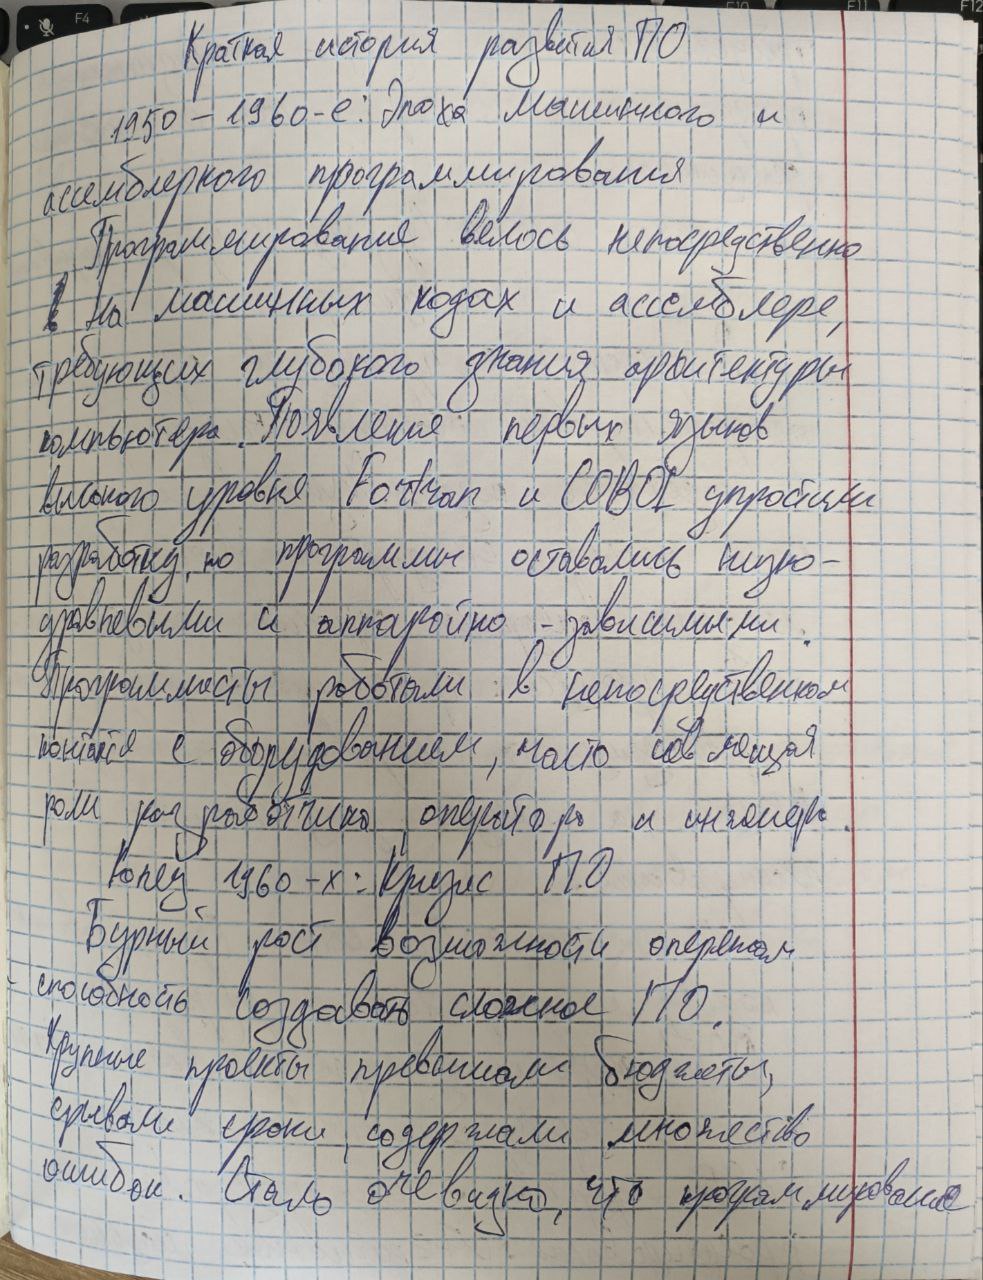 Краткая история развития ПО
1950 – 1960-е: Эпоха машинного и
ассемблерного программирования
Программирование велось непосредственно
на машинных кодах и ассемблере,
требующих глубокого знания архитектуры
компьютера. Появление первых языков
высокого уровня Fortran и COBOL упростили
разработку, но программы оставались низко-
уровневыми и аппаратно-зависимыми.
Программисты работали в непосредственном
контакте с оборудованием, часто совмещая
роли разработчика, оператора и инженера.
Конец 1960-х: Кризис ПО
Бурный рост возможности опережал
способность создавать сложное ПО.
Крупные проекты превышали бюджеты,
срывали сроки, содержали множество
ошибок. Стало очевидно, что программирование
F4
F10
F11
F12